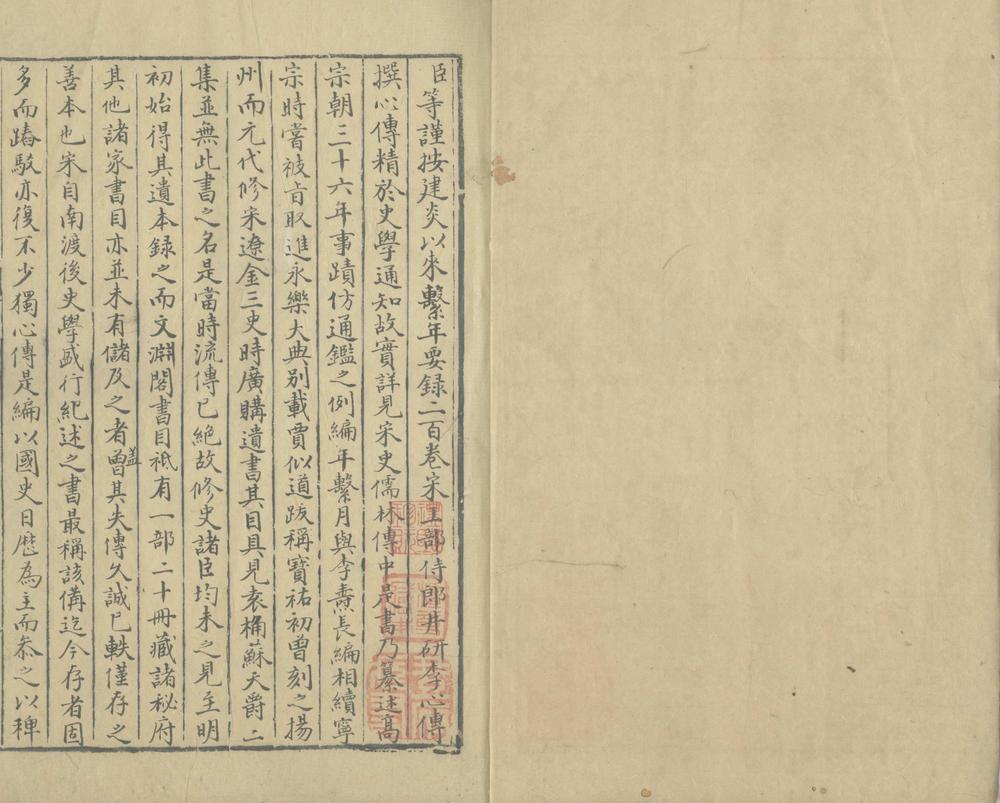 臣等謹按建炎以來繫年要錄二百卷宋工部侍郎井研李心傳
撰心傳精於史學通知故實詳見宋史儒林傳中是書乃纂述高
宗朝三十六年事蹟仿通鑑之例編年繫月與李燾長編相續寧
宗時嘗被旨取進永樂大典別載賈似道跋稱寶祐初曾刻之揚
州而元代修宋遼金三史時廣購遺書其目具見袁桷蘇天爵二
集並無此書之名是當時流傳已絕故修史諸臣均未之見至明
初始得其遺本錄之而文淵閣書目祗有一部二十冊藏諸秘府
其他諸家書目亦並未有儲及之者曾蓋其失傳久誠已軼僅存之
善本也宋自南渡後史學盛行紀述之書最稱該備迄今存者固
多而踳駁亦復不少獨心傳是編以國史日厯為主而叅之以稗